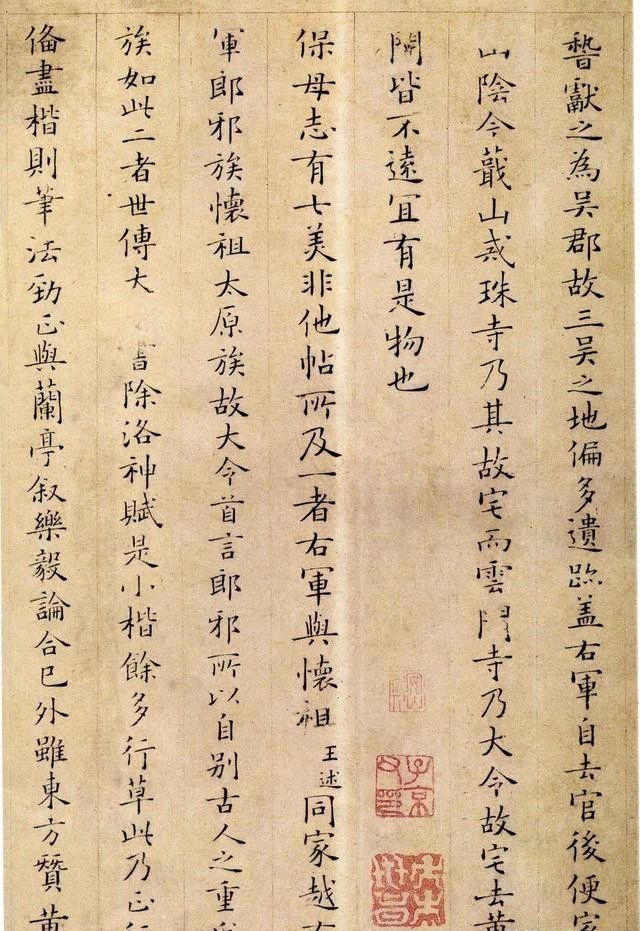 晉獻之為吳郡故三吳之地偏多遺跡盖右軍自去官後便家
山陰今蕺山戒珠寺乃其故宅而雲門寺乃大令故宅去黄
閍皆不遠宜有是物也
保母志有七美非他帖所及一者右軍與懷祖王述同家越右
軍郎邪族懷祖太原族故大令首言郎邪所以自别古人之重
族如此二者世傳大書除洛神賦是小楷餘多行草此乃正行
俻盡楷則筆法勁正與蘭亭叙樂毅論合已外雖東方贊黄